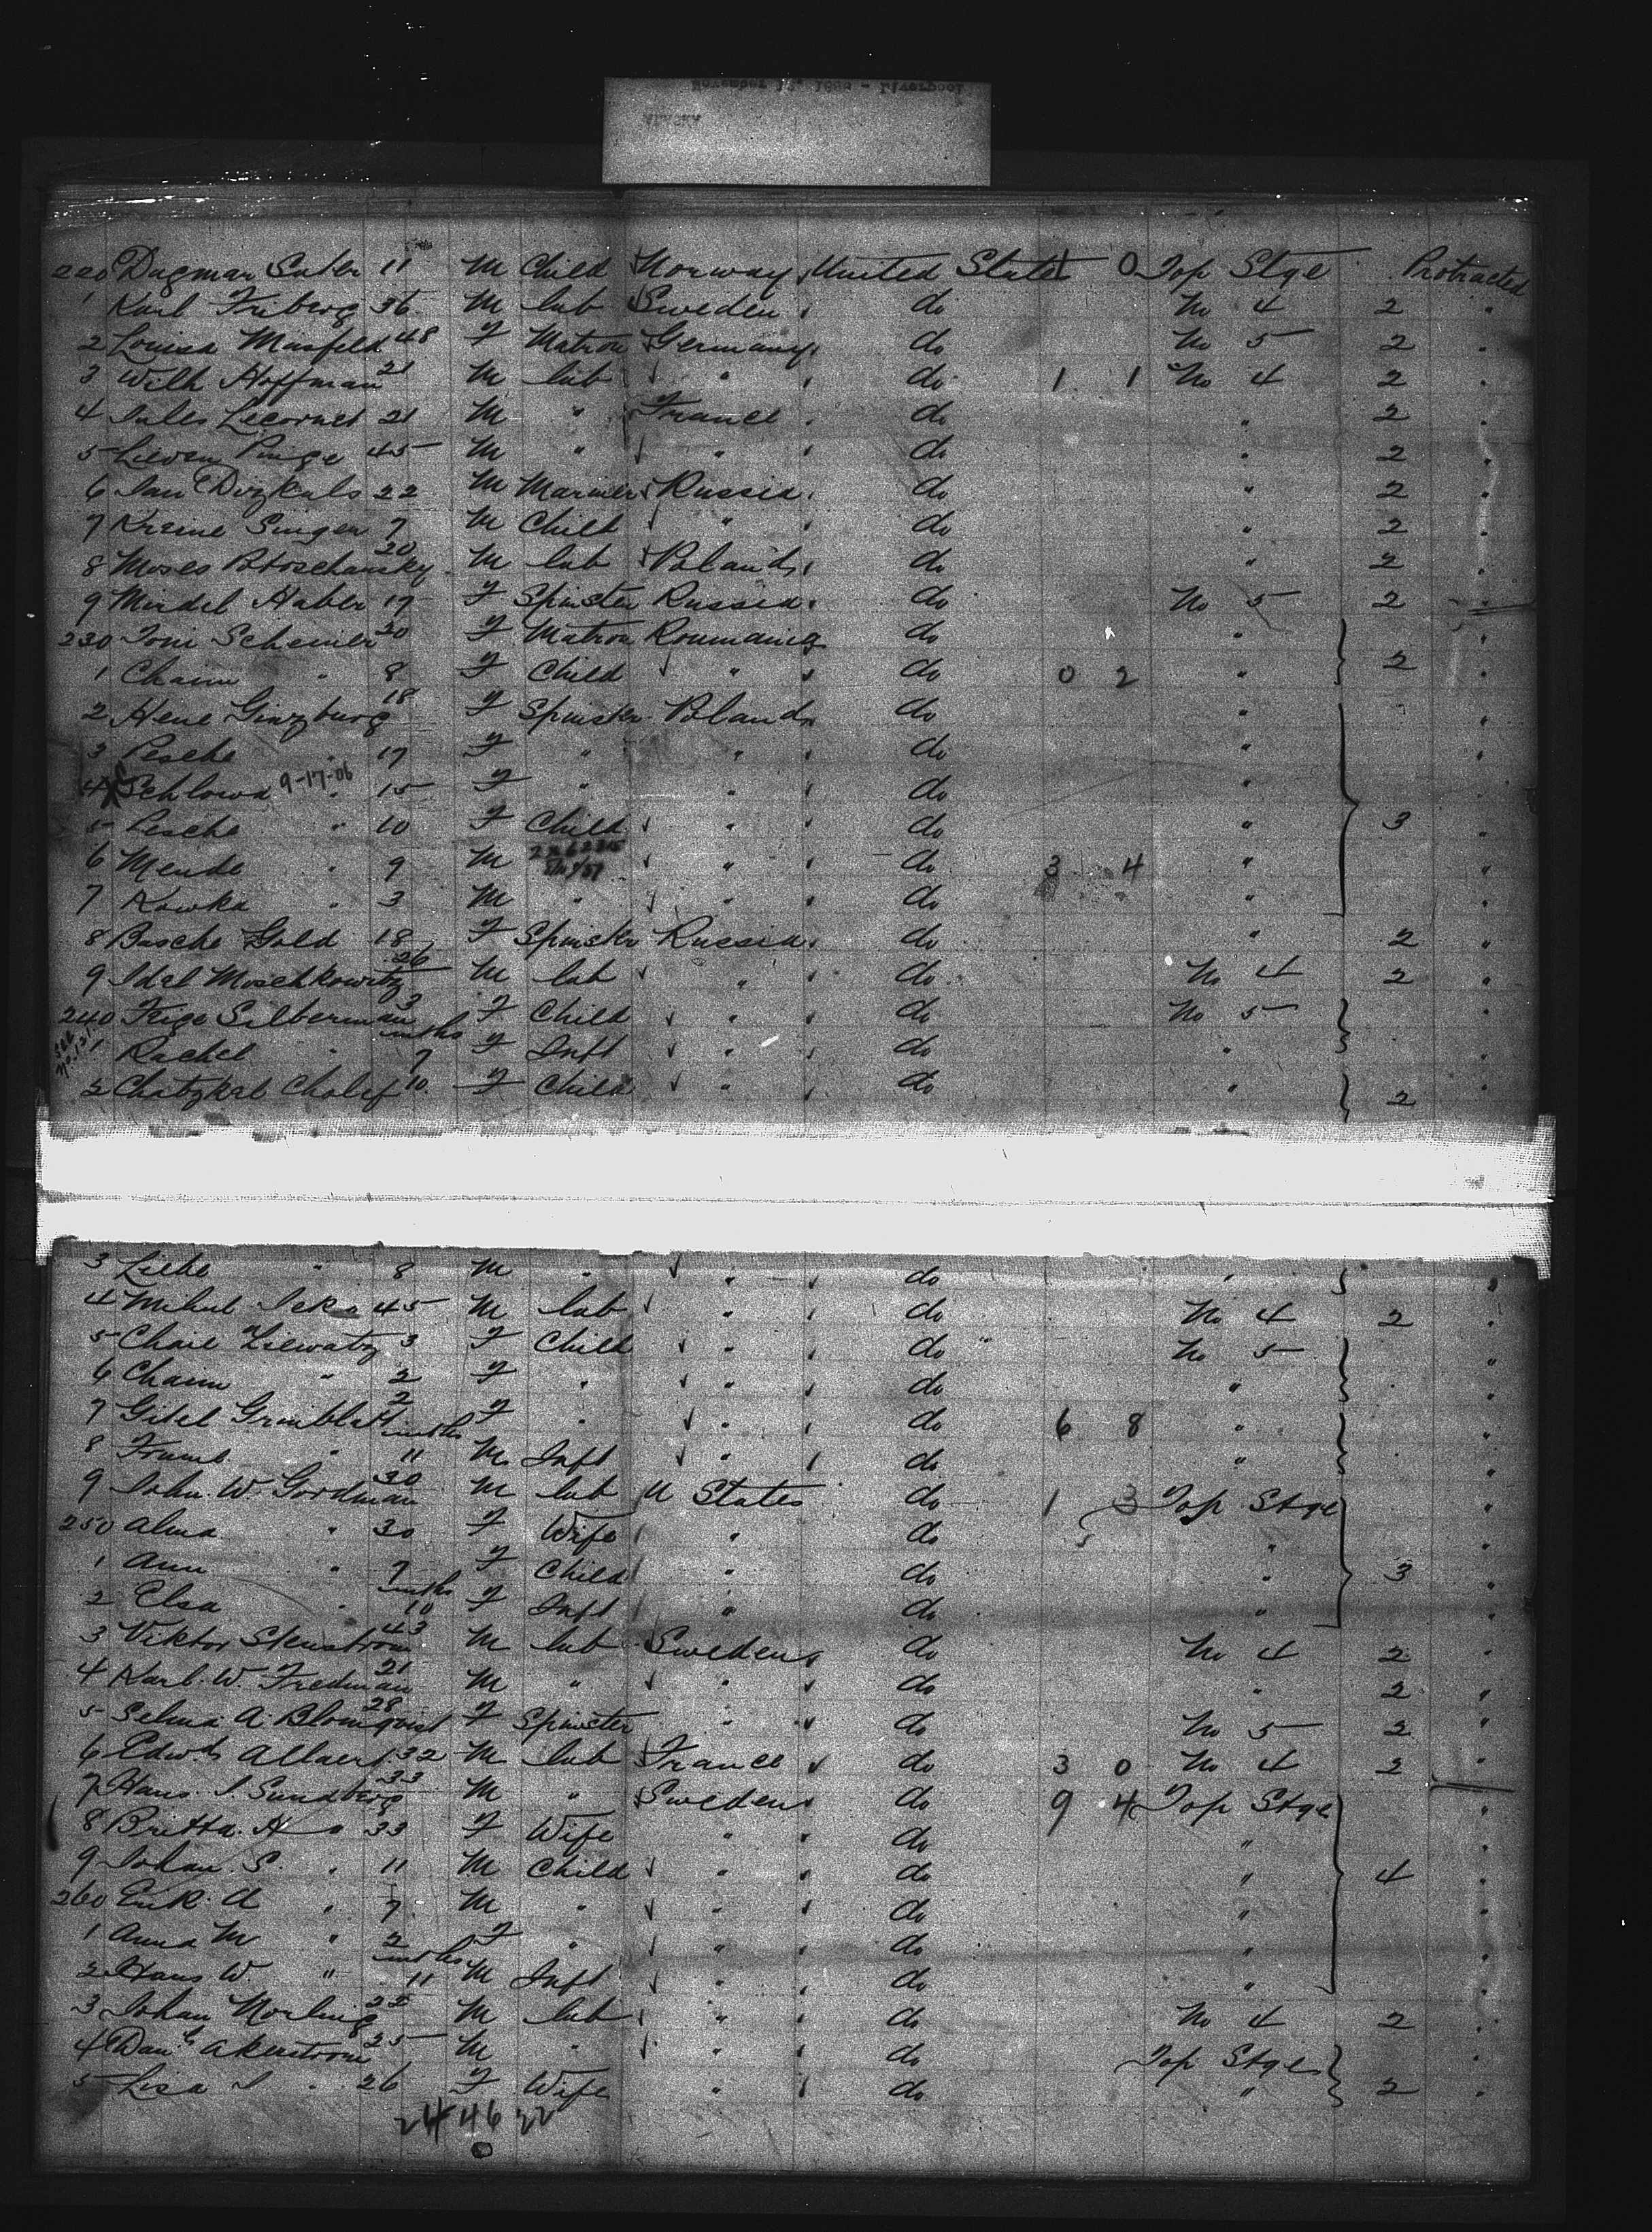 ALASKA
220 Dagmar Sater 11 M Child Norway United States 0 Top Stge Protracted
1 Karl Friberg 36 M lab Sweden do No 4 2 "
2 Louisa Masfeld 48 F Matron Germany do No 5 2 "
3 Wilh Hoffman 21 M lab " do 1 1 No 4 2 "
4 Jules Lecornet 21 M " France do " 2 "
5 Lieven Pinge 45 M " " do " 2 "
6 Jan Dizkals 22 M Mariner Russia do " 2 "
7 Kreine Singer 7 M Child " do " 2 "
8 Moses 20 M lab Poland do " 2 "
9 Mindel Haber 17 F Spinster Russia do No 5 2 "
230 Toni Scheiner 20 F Matron Roumania do " "
1 Chaim " 8 F Child " do 0 2 " 2 "
2 Hene Ginzburg 18 F Spinster Poland do " "
3 Pesche " 17 F " " do " "
4 Schlowa 9-17-06 " 15 F " " do " "
5 Lesche " 10 F Child " do " 3 "
6 Mende " 9 M " do 3 4 " "
7 Kowka " 3 M " " do " "
8 Basche Gold 18 F Spinster Russia do " 2 "
9 Idel Moschkowitz 26 M lab " do No 4 2 "
240 Feige Silberman 3 F Child " do No 5 "
1 Rachel " mths 7 F Inft " do " "
2 Chatzkel Cholef 10 F Child " do " 2 "
3 Liebe " 8 M " " do " "
4 Mihul 45 M lab " do No 4 2 "
5 Chaie 3 F Child " do No 5 "
6 Chaim " 2 F " " do " "
7 Gitel Grinblatt 2 F " " do 6 8 " "
8 Frumb " mths 11 M Inft " do " "
9 John W. Goodman 30 M lab U States do 1 3 Top Stge "
250 Alma " 30 F Wife " do " "
1 Ann " 7 F Child " do " 3 "
2 Elsa " mths 10 F Inft " do " "
3 Viktor Stenstrom 43 M lab Sweden do No 4 2 "
4 Karl W. Fredman 21 M " " do " 2 "
5 Selma A. Blomquist 28 F Spinster " do No 5 2 "
6 Edwd Allaert 32 M lab France do 3 0 No 4 2 "
7 Hans J. Sundberg 33 M " Sweden do 9 4 Top Stge "
8 Britta A " 33 F Wife " do " "
9 Johan S. " 11 M Child " do " 4 "
260 Erik A " 7 M " " do " "
1 Anna M " 2 F " " do " "
2 Hans W. " mths 11 M Inft " do " "
3 Johan Norling 22 M lab " do No 4 2 "
4 Danl Akerstrom 25 M " " do Top Stge "
5 Lisa J " 26 F Wife " do " 2 "
24 46 22